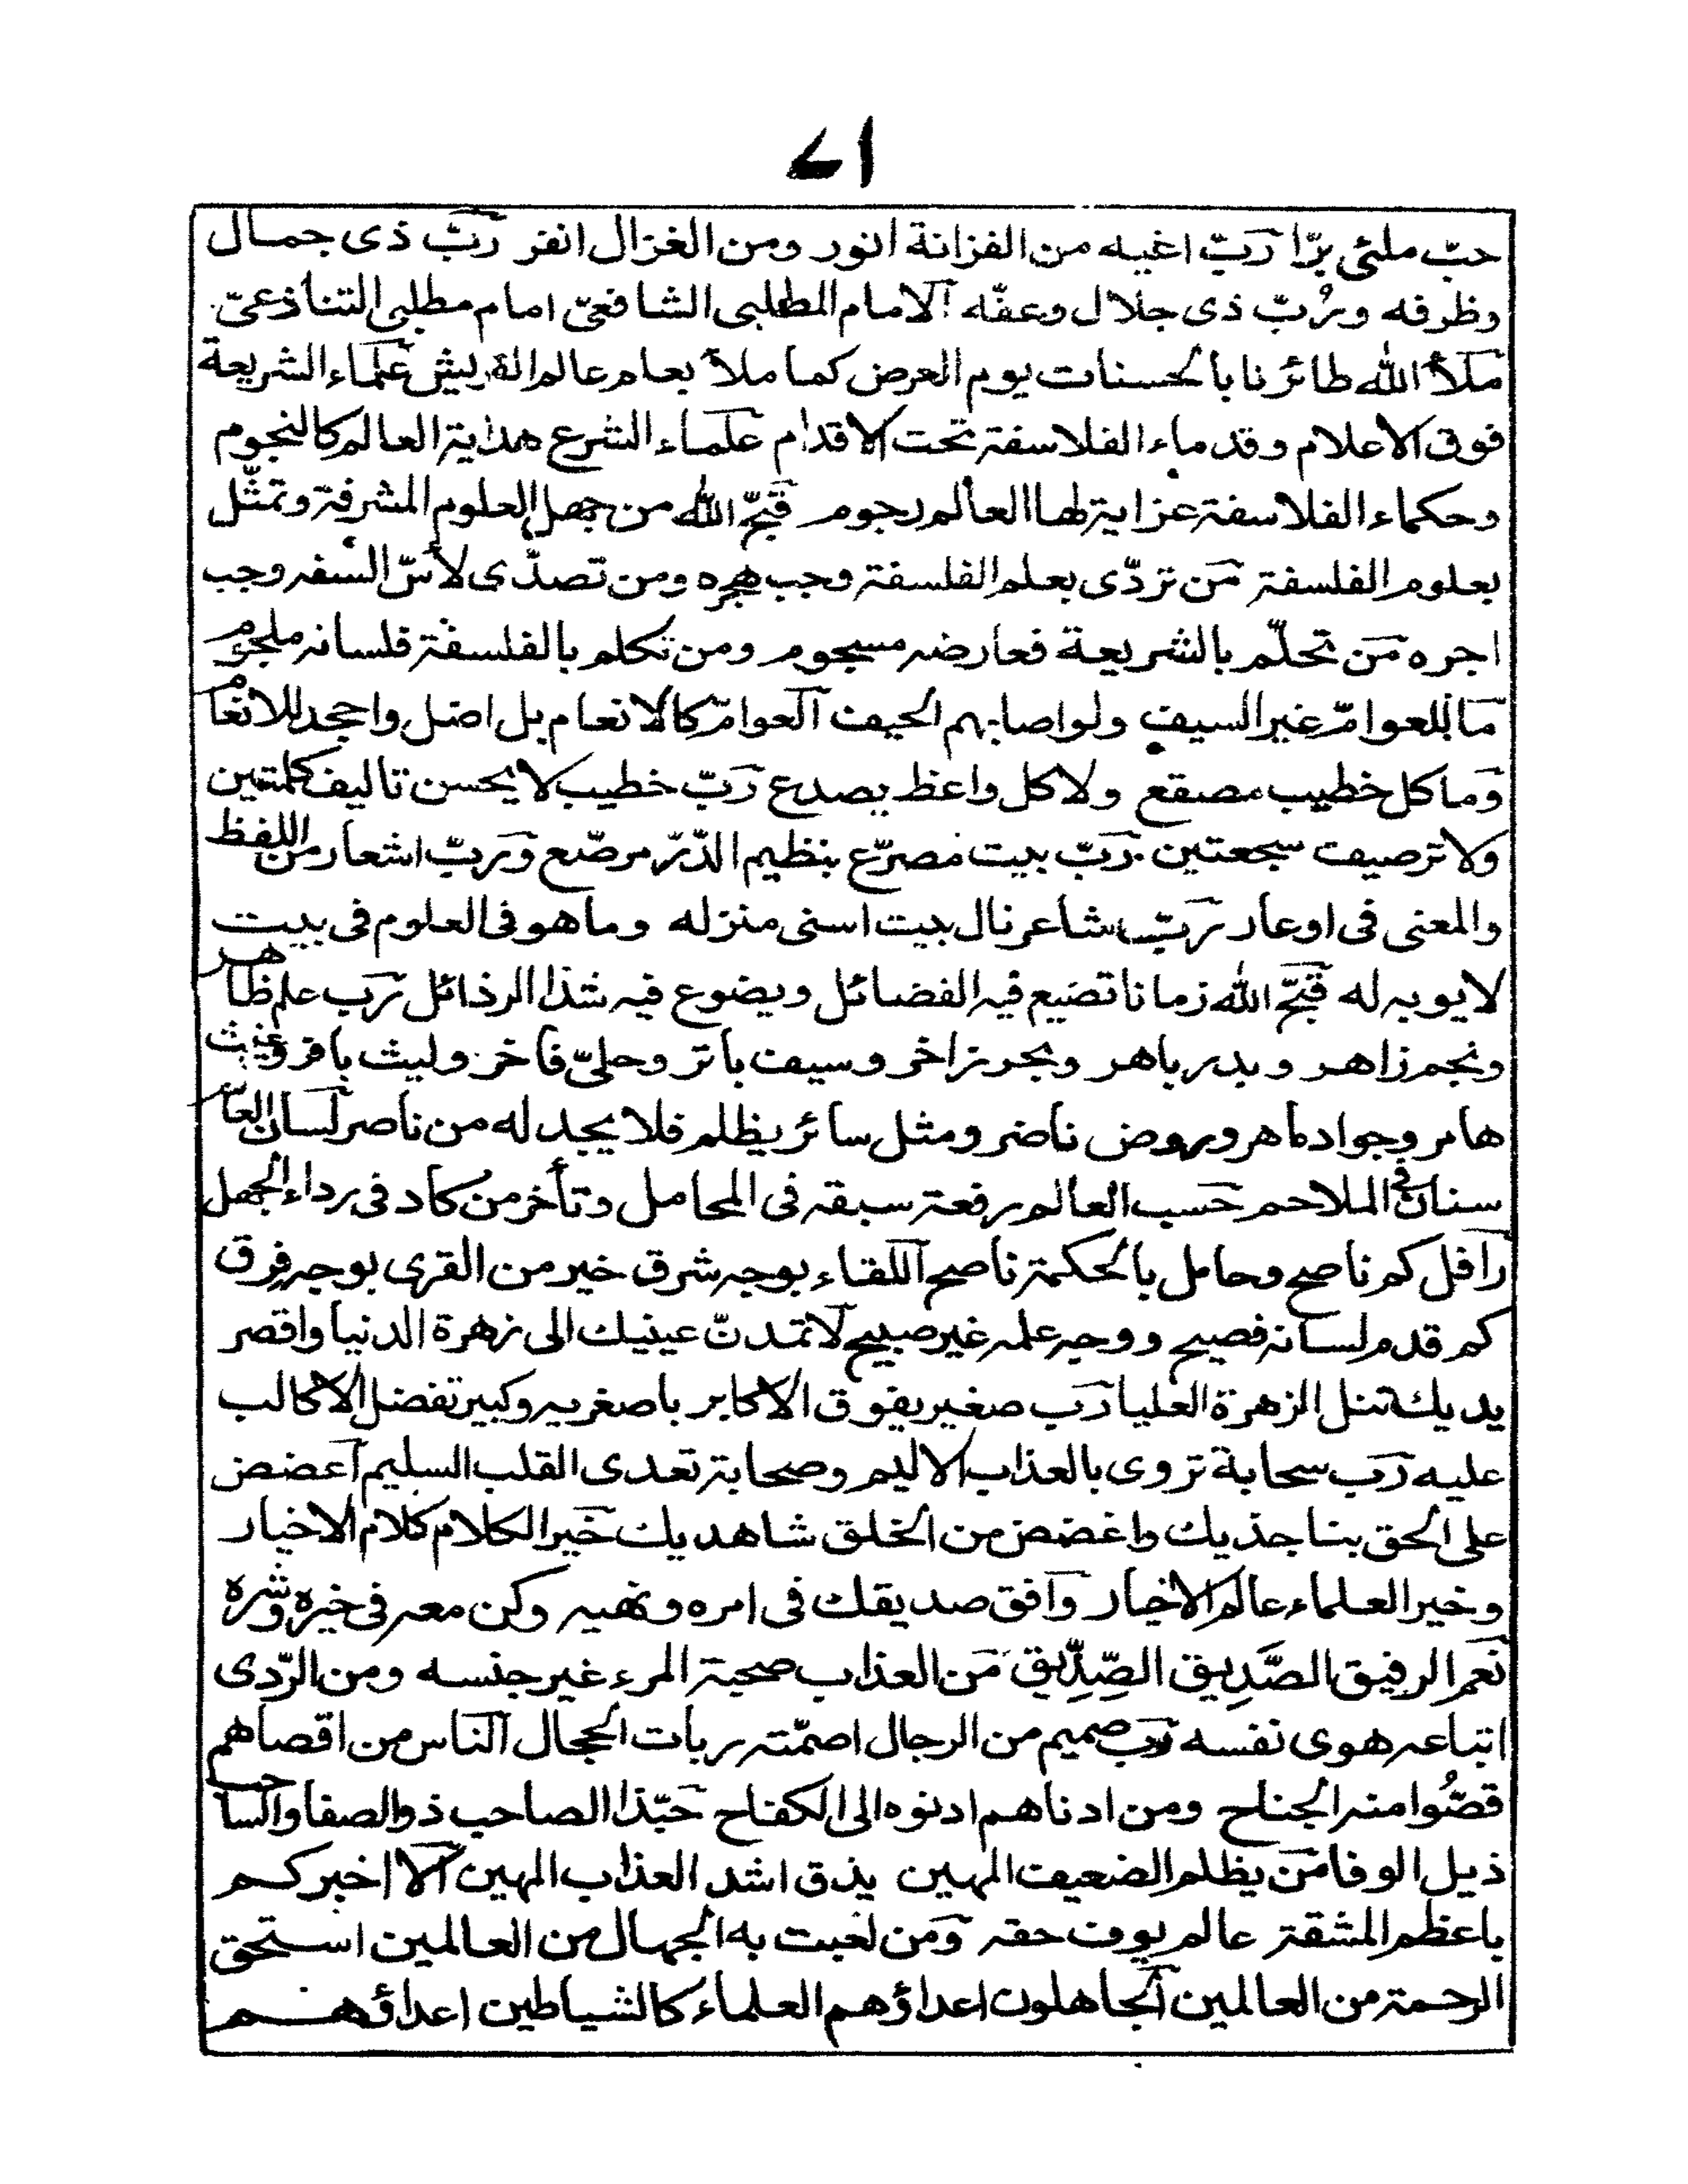 ١٧
حبّ ملئى برّا رَبّ اغيه من الفزانة انور ومن الغزال انفر رَبّ ذى جمال
وظرفه ورُبّ ذى جلال وعفّه آلامام المطلبى الشافعىّ امام مطلبى التنازعىّ
مَلأ الله طائرنا بالحسنات يوم العرض كما ملأ بعام عالم القريش عَلماء الشريعة
فوق الاعلام وقدماء الفلاسفة تحت الاقدام عَلماء الشرع هداية العالم كالنجوم
وحكماء الفلاسفة عزاية لها العالم رجوم قَبّح الله من جهل العلوم المشرفة وتمثّل
بعلوم الفلسفة مَن تردّى بعلم الفلسفة وجب هجره ومن تصدّى لأسّ السفر وجب
اجره مَن تحلّم بالشريعة فعارضه مسجوم ومن تكلم بالفلسفة فلسانه ملجوم
مَا للعوامّ غير السيف ولو اصابهم الحيف آلعوامّ كالانعام بل اضل واجحد للانعام
وَما كل خطيب مصقع ولا كل واعظ يصدع رَبّ خطيب لا يحسن تاليف كلمتين
ولا ترصيف سجعتين رَبّ بيت مصرّع بنظيم الدّرّ مرصّع وَربّ اشعار من اللفظ
والمعنى فى اوعار رَبّ شاعر نال بيت اسنى منزله وما هو فى العلوم فى بيت
لا يوبه له قَبّح الله زمانا تضيع فيه الفضائل ويضوع فيه شذا الرذائل رَب علم ظاهر
ونجم زاهر وبدر باهر وبحر زاخر وسيف باتر وحلىّ فاخر وليث باقر وغيث
هامر وجواد ماهر وروض ناضر ومثل سائر يظلم فلا يجد له من ناصر لَسان العالم
سنان فى الملاحم حَسب العالم رفعة سبقه فى المحامل وتأخر من كاد فى رداء الجهل
رَافل كم ناصح وحامل بالحكمة ناصح آللقاء بوجه شرق خير من القرى بوجه فرق
كم قدم لسانه فصيح ووجه علمه غير صبيح لَا تمدنّ عينيك الى زهرة الدنيا واقصر
يديك تنل الزهرة العليا رَب صغير يفوق الاكابر باصغريه وكبير تفضل الاكالب
عليه رَب سحابة تروى بالعذاب الاليم وصحابة تعدى القلب السليم آعضض
على الحق بناجذيك واغضض من الخلق شاهديك خَير الكلام كلام الاخيار
وخير العلماء عالم الاخبار وَافق صديقك فى امره ونهيه وكن معه فى خيره وشره
نَعم الرفيق الصَّدِيق الصِّدِّيق مَن العذاب صحبة المرء غير جنسه ومن الرّدى
اتباعه هوى نفسه رَب صميم من الرجال اصمّته ربات الحجال آلناس من اقصاهم
قصُّوا منه الجناح ومن ادناهم ادنوه الى الكفاح حَبّذا الصاحب ذو الصفا والساحب
ذيل الوفا مَن يظلم الضعيف المهين يذق اشد العذاب المهين آلا اخبركم
باعظم المشقة عالم يوف حقه وَمن لعبت به الجهال من العالمين استحق
الرحمة من العالمين آلجاهلون اعداؤهم العلماء كالشياطين اعداؤهم